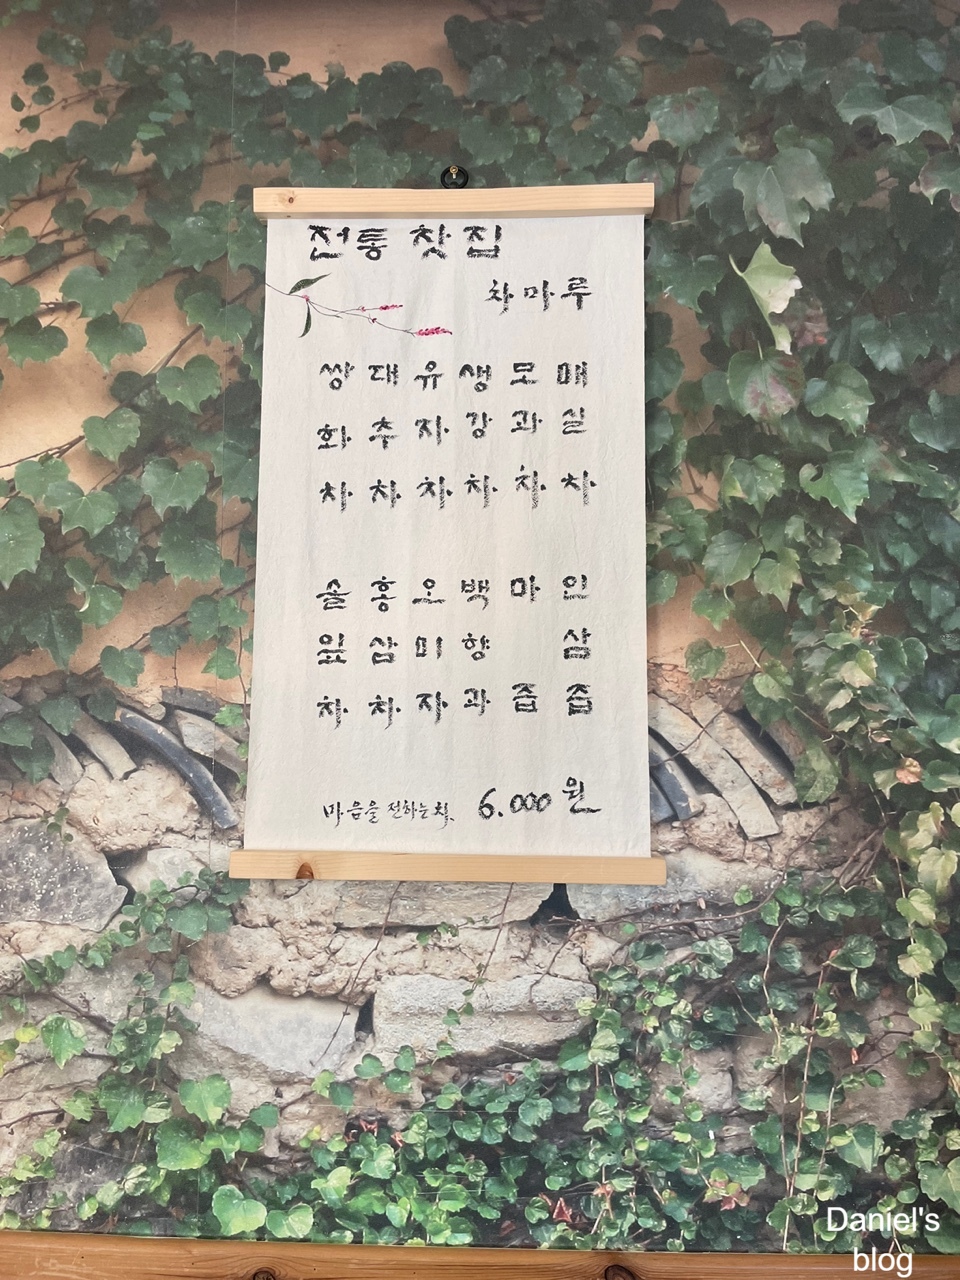 전통 찻집
차마루
쌍화차
대추차
유자차
생강차
모과차
매실차
솔잎차
홍삼차
오미자
백향과
마즙
인삼즙
마음을 전하는 차. 6.000원
Daniel's
blog